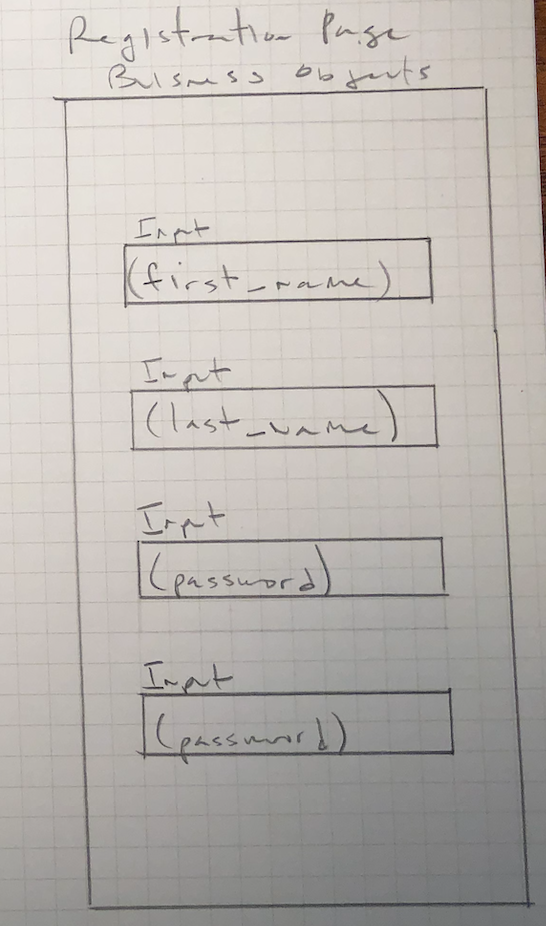 Registration Page
Buisness objects
Input
(first_name)
Input
(last_name)
Input
(password)
Input
(password)